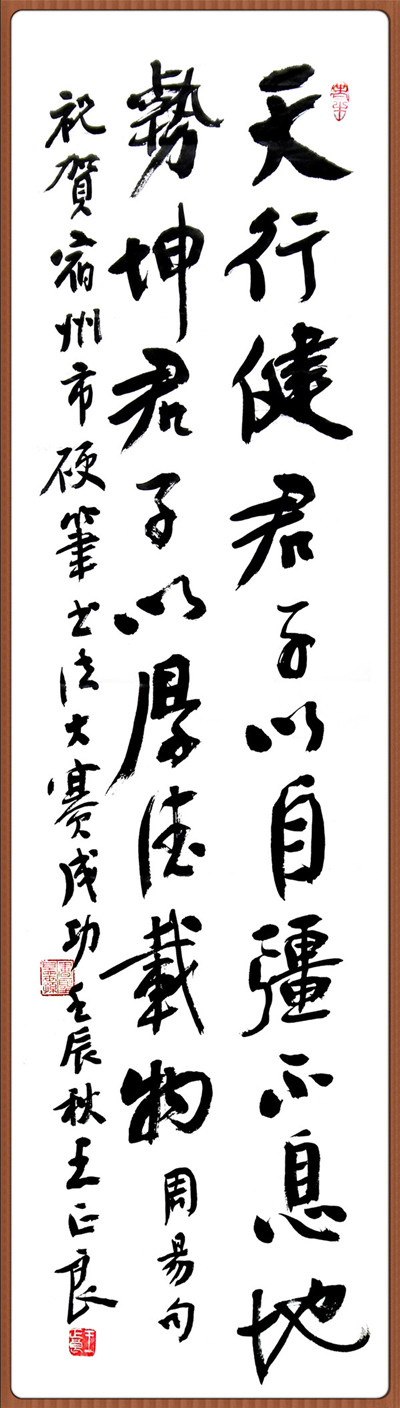 天行健君子以自彊不息地
勢坤君子以厚德載物
周易句
祝賀宿州市硬筆书法大賽成功壬辰秋王正良